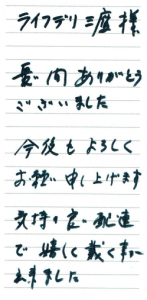 ライフデリ三鷹様
長い間ありがとう
ございました
今後もよろしく
お願い申し上げます
気持の良い配達
で嬉しく戴く事が
出来ました